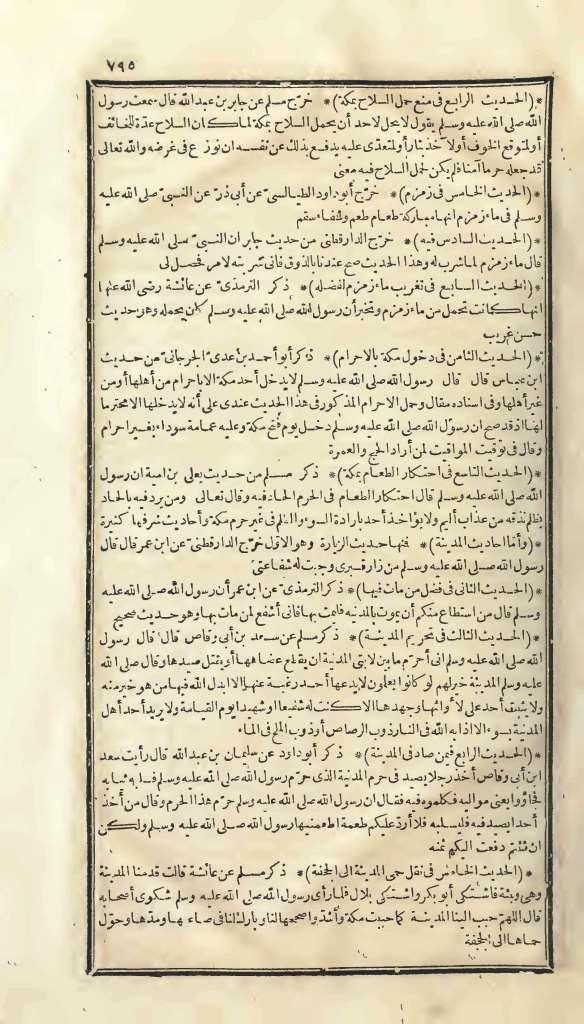 ٧٩٥
*(الحديث الرابع في منع حمل السلاح بمكة)* خرّج مسلم عن جابر بن عبد الله قال سمعت رسول
الله صلى الله عليه وسلم يقول لا يحل لاحد أن يحمل السلاح بمكة لما كان السلاح عدة للخائف
أو لمتوقع الخوف أولآ خذ بثار أو لمتعدّى عليه يدفع بذلك عن نفسه ان نوزع في غرضه والله تعالى
قد جعله حرما آمنا فلم يكن لحمل السلاح فيه معنى
*(الحديث الخامس في زمزم)* خرّج أبو داود الطيالسي عن أبي ذر عن النبي صلى الله عليه
وسلم في ماء زمزم انها مباركة طعام طعم وشفاء سقم
*(الحديث السادس فيه)* خرّج الدارقطني من حديث جابر ان النبي صلى الله عليه وسلم
قال ماء زمزم لما شرب له وهذا الحديث صح عندنا بالذوق فاني شربته لامر فحصل لي
*(الحديث السابع في تغريب ماء زمزم لفضله)* ذكر الترمذي عن عائشة رضى الله عنها
انها كانت تحمل من ماء زمزم وتخبر أن رسول الله صلى الله عليه وسلم كان يحمله وهو حديث
حسن غريب
*(الحديث الثامن في دخول مكة بالاحرام)* ذكر أبو أحمد بن عدي الجرجاني من حديث
ابن عباس قال قال رسول الله صلى الله عليه وسلم لا يدخل أحد مكة الا باحرام من أهلها أو من
غير أهلها وفي اسناده مقال وحمل الاحرام المذكور في هذا الحديث عندي على أنه لا يدخلها الا محترما
لها اذ قد صح ان رسول الله صلى الله عليه وسلم دخل يوم فتح مكة وعليه عمامة سوداء بغير احرام
وقال في توقيت المواقيت لمن أراد الحج والعمرة
*(الحديث التاسع في احتكار الطعام بمكة)* ذكر مسلم من حديث يعلى بن امية ان رسول
الله صلى الله عليه وسلم قال احتكار الطعام في الحرم الحاد فيه وقال تعالى ومن يرد فيه بالحاد
بظلم نذقه من عذاب أليم ولا يؤاخذ أحد بارادة السوء والظلم في غير حرم مكة وأحاديث شرفها كثيرة
*(وأما أحاديث المدينة)* فنها حديث الزيارة وهو الاول خرّج الدارقطني عن ابن عمر قال قال
رسول الله صلى الله عليه وسلم من زار قبري وجبت له شفاعتي
*(الحديث الثاني في فضل من مات فيها)* ذكر الترمذي عن ابن عمر أن رسول الله صلى الله عليه
وسلم قال من استطاع منكم أن يموت بالمدينه فليمت بها فاني أشفع لمن مات بها وهو حديث صحيح
*(الحديث الثالث في تحريم المدينة)* ذكر مسلم عن سعد بن أبي وقاص قال قال رسول
الله صلى الله عليه وسلم اني أحرّم ما بين لابتي المدينة ان يقطع عضاهها أو يقتل صيدها وقال صلى الله
عليه وسلم المدينة خير لهم لو كانوا يعلمون لا يدعها أحد رغبة عنها الا ابدل الله فيها من هو خير منه
ولا يثبت أحد على لأوائها وجهدها الا كنت له شفيعا أو شهيدا يوم القيامة ولا يريد أحد أهل
المدينة بسوء الا اذابه الله في النار ذوب الرصاص أو ذوب الملح في الماء
*(الحديث الرابع فيمن صاد في المدينة)* ذكر أبو داود عن سليمان بن عبد الله قال رأيت سعد
ابن أبي وقاص أخذ رجلا يصيد في حرم المدينة الذي حرّم رسول الله صلى الله عليه وسلم فسلبه ثيابه
فجاؤا يعنى مواليه فكلموه فيه فقال ان رسول الله صلى الله عليه وسلم حرّم هذا الحرم وقال من أخذ
أحدا يصيد فيه فليسلبه فلا أردّ عليكم طعمة اطعمنيها رسول الله صلى الله عليه وسلم ولكن
ان شئتم دفعت اليكم ثمنه
*(الحديث الخامس في نقل حمى المدينة الى الجحفة)* ذكر مسلم عن عائشة قالت قدمنا المدينة
وهي وبئة فاشتكى أبو بكر واشتكى بلال فلما رأى رسول الله صلى الله عليه وسلم شكوى أصحابه
قال اللهم حبب الينا المدينة كما حببت مكة وأشدّ وصححها لنا وبارك لنا في صاعها ومدّها وحوّل
حماها الى الجحفة